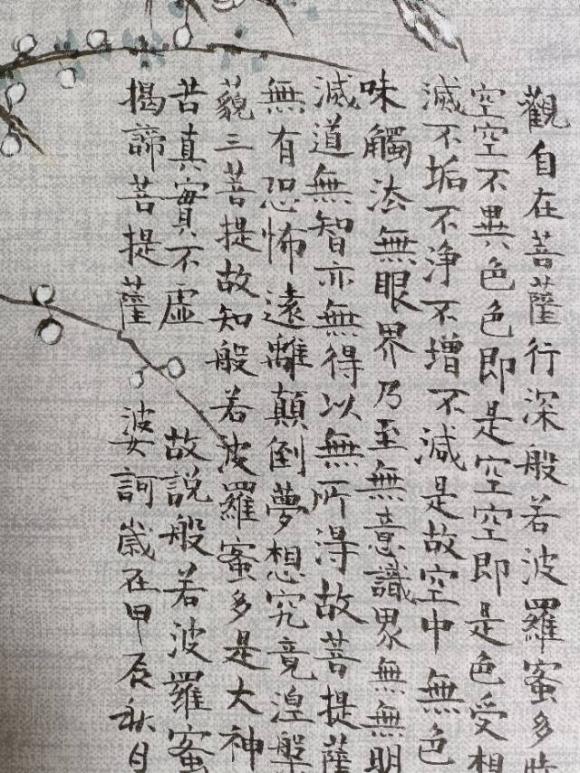 觀自在菩薩行深般若波羅蜜多時
空空不異色色即是空空即是色受想
滅不垢不淨不增不減是故空中無色
味觸法無眼界乃至無意識界無無明
滅道無智亦無得以無所得故菩提薩
無有恐怖遠離顛倒夢想究竟涅槃
藐三菩提故知般若波羅蜜多是大神
苦真實不虛 故說般若波羅蜜
揭諦菩提薩 婆訶歲在甲辰秋月